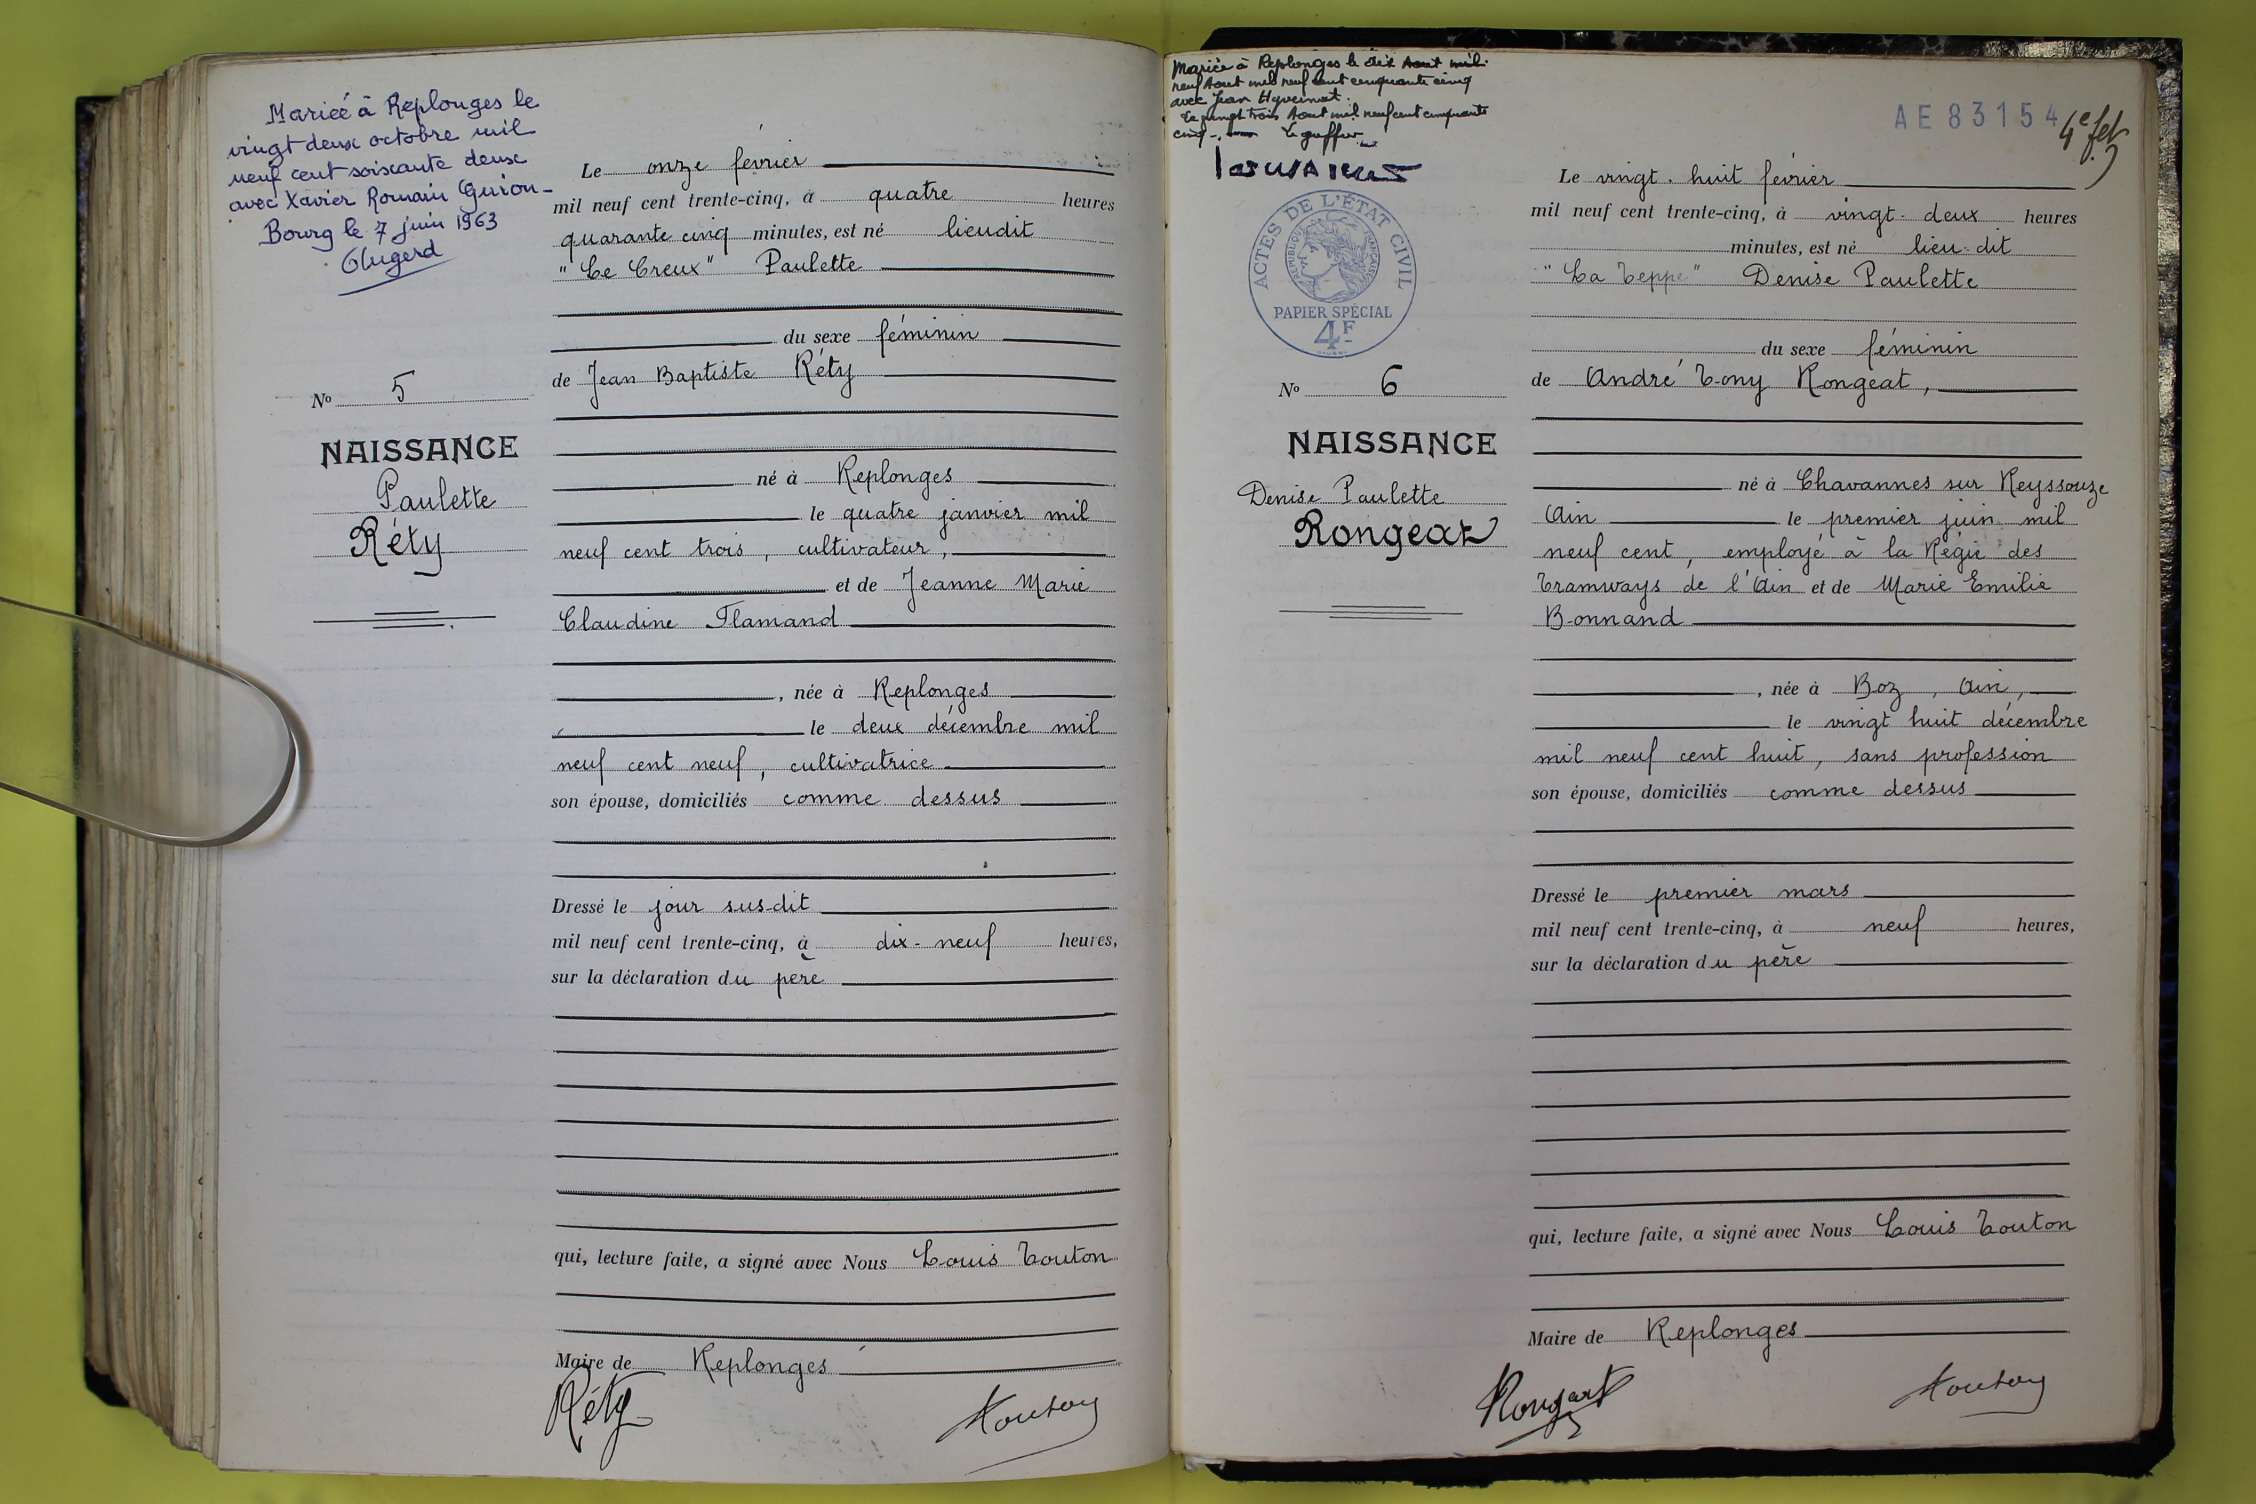 Mariée à Replonges le
vingt deux octobre mil
neuf cent soixante deux
avec Xavier Romain Guion
Bourg le 7 juin 1963
Le onze février
mil neuf cent trente-cinq, à quatre heures
quarante cinq minutes, est né lieudit
"Le Creux" Paulette
du sexe féminin
de Jean Baptiste Réty
né à Replonges
le quatre janvier mil
neuf cent trois, cultivateur,
et de Jeanne Marie
Claudine Flamand
, née à Replonges
le deux décembre mil
neuf cent neuf, cultivatrice
son épouse, domiciliés comme dessus
Dressé le jour sus-dit
mil neuf cent trente-cinq, à dix-neuf heures,
sur la déclaration du père
qui, lecture faite, a signé avec Nous Louis Touton
Maire de Replonges
Réty
Touton
No 5
NAISSANCE
Paulette
Réty
Mariée à Replonges le dix Aout mil
neuf Aout mil neuf cent cinquante cinq
avec Jean
Le vingt trois Aout mil neuf cent cinquante
cinq. Le greffier
ACTES DE L'ÉTAT CIVIL
RÉPUBLIQUE FRANÇAISE
PAPIER SPÉCIAL
4F
AE 83154
4e fet
No 6
NAISSANCE
Denise Paulette
Rongeat
Le vingt-huit février
mil neuf cent trente-cinq, à vingt-deux heures
minutes, est né lieu-dit
"La Teppe" Denise Paulette
du sexe féminin
de André Tony Rongeat,
né à Chavannes sur Reyssouze
Ain le premier juin mil
neuf cent, employé à la Régie des
Tramways de l'Ain et de Marie Emilie
Bonnand
, née à Boz, Ain,
le vingt huit décembre
mil neuf cent huit, sans profession
son épouse, domiciliés comme dessus
Dressé le premier mars
mil neuf cent trente-cinq, à neuf heures,
sur la déclaration du père
qui, lecture faite, a signé avec Nous Louis Touton
Maire de Replonges
Rongeat
Touton